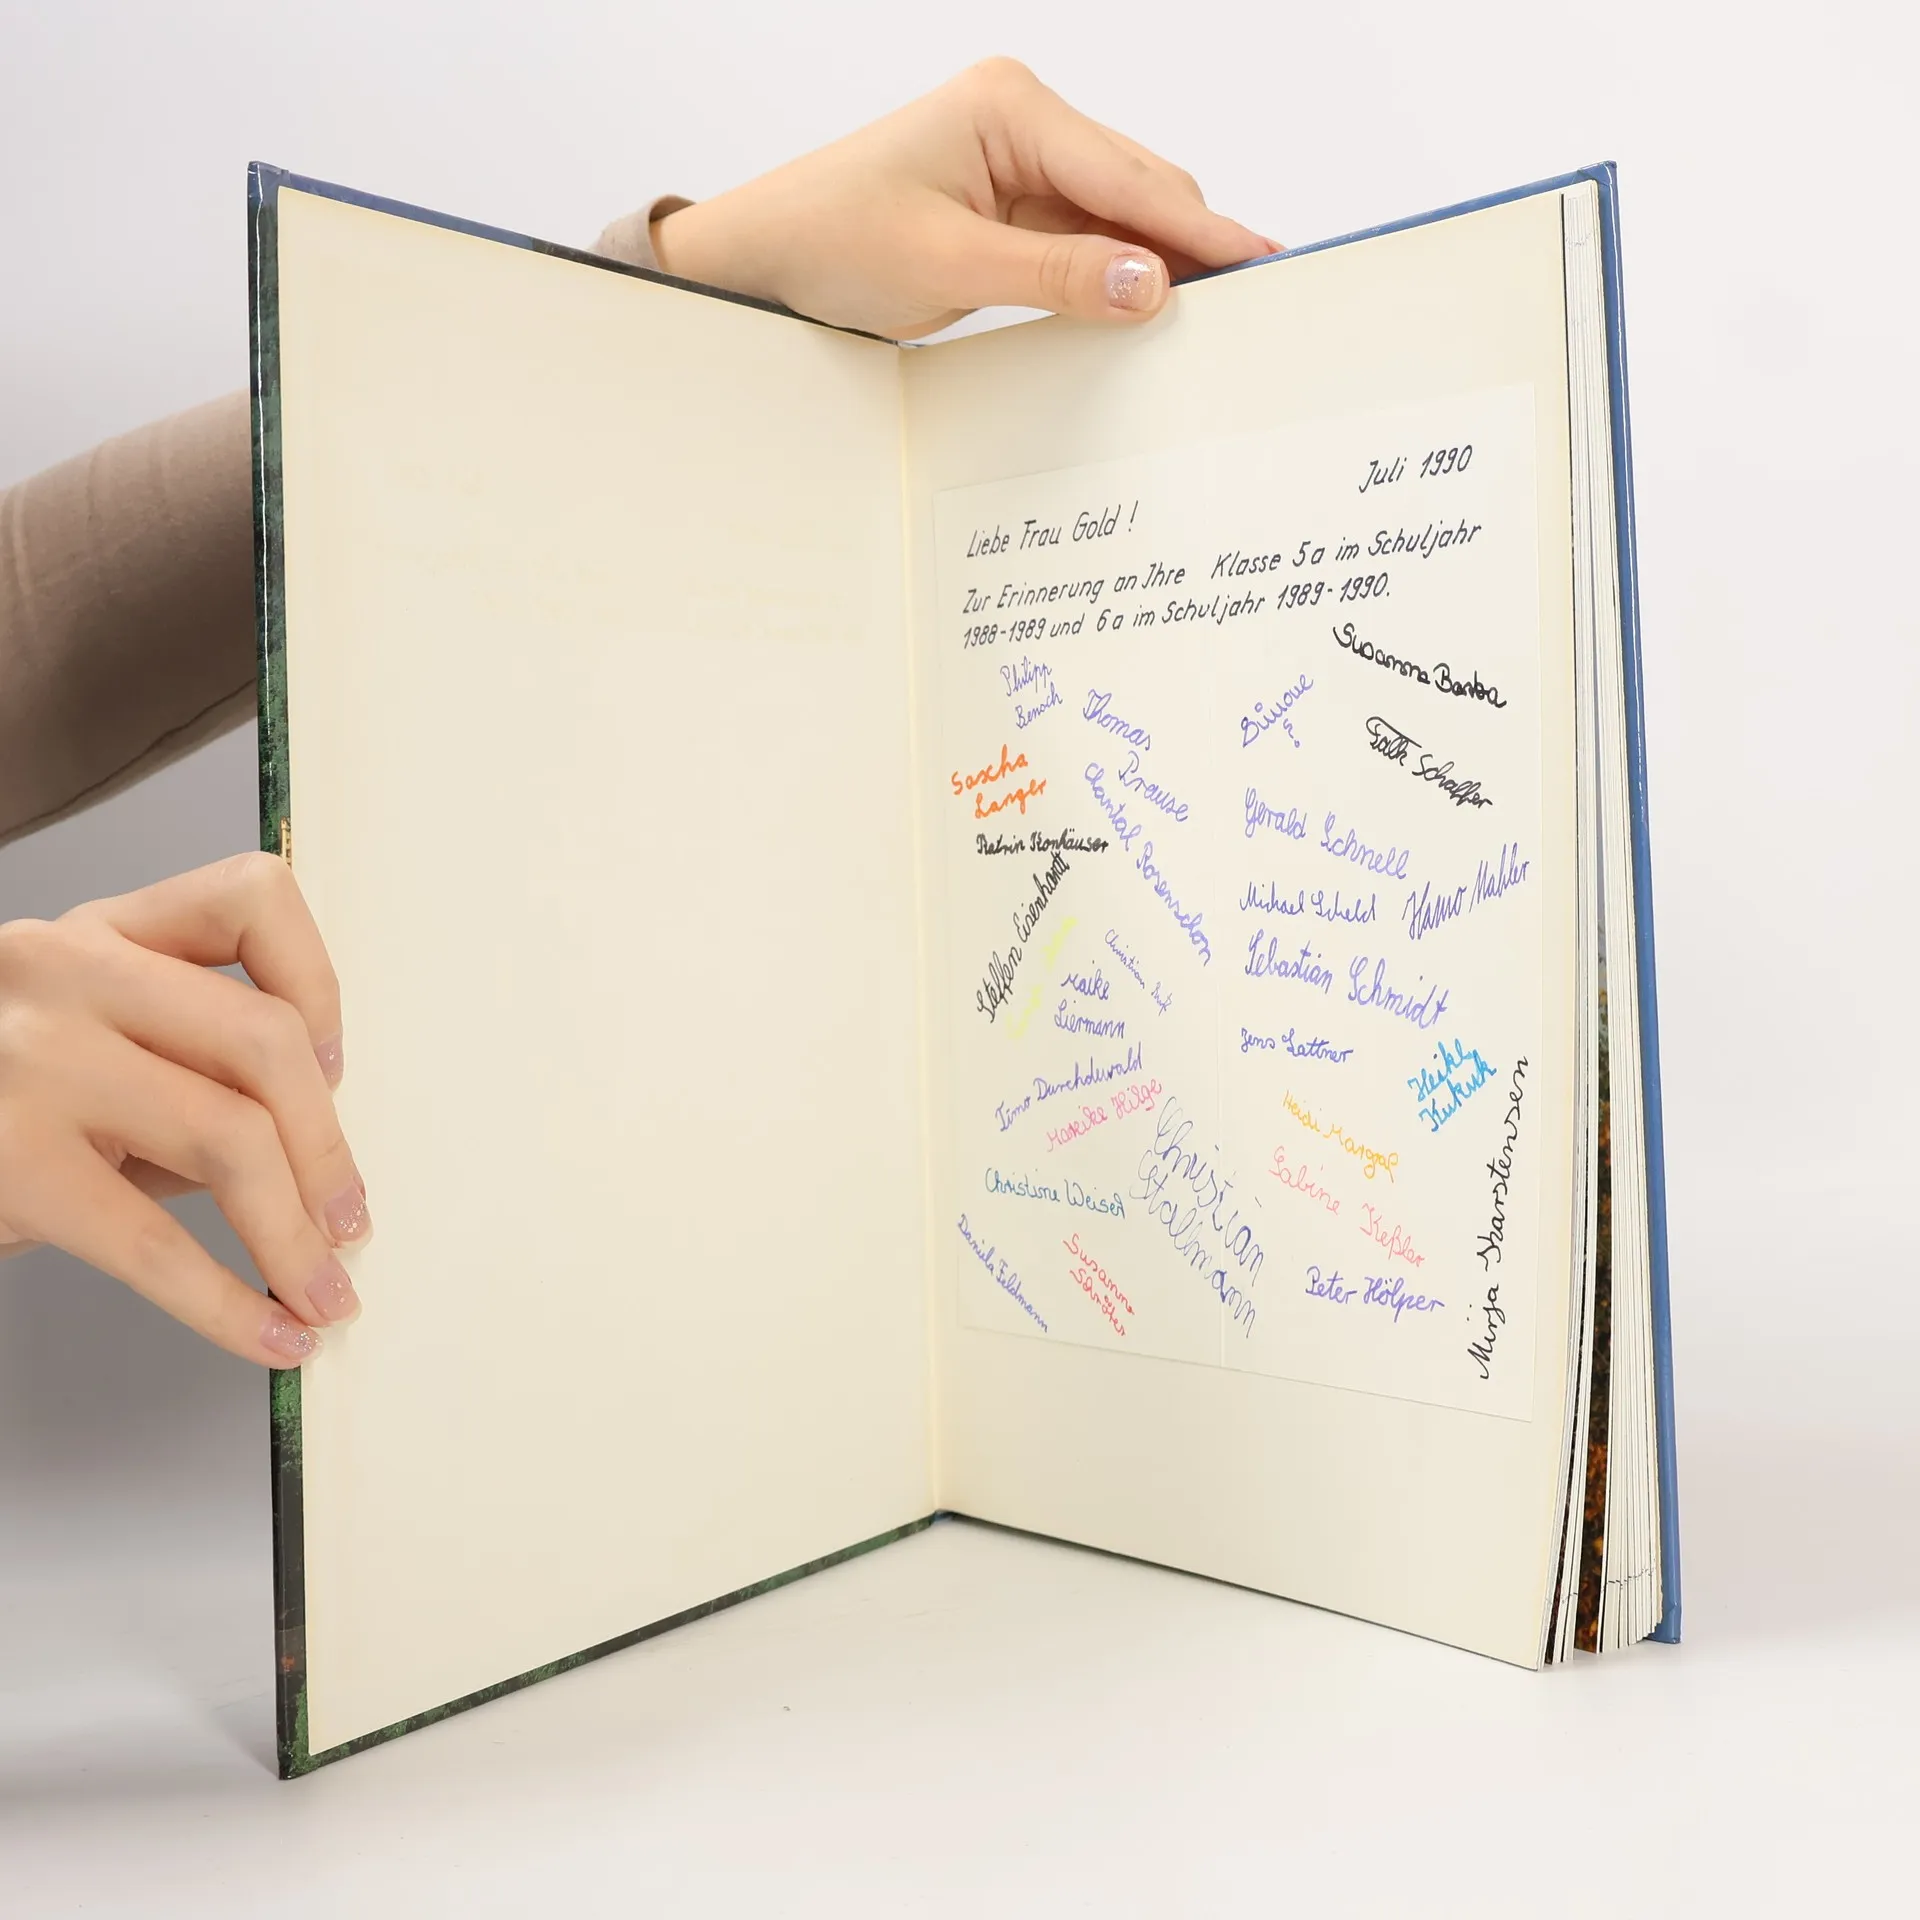 Juli 1990
Liebe Frau Gold !
Zur Erinnerung an Ihre Klasse 5a im Schuljahr
1988-1989 und 6a im Schuljahr 1989-1990.
Susanna Barba
Philipp
Benoch
Thomas
Krause
Simone
S.
Falk Schaffer
Sascha
Langer
Chantal Rosenschon
Gerald Schnell
Katrin Konhäuser
Steffen Eisenhardt
Michael Scheld
Hanno Mahler
Christian
Maike
Liermann
Sebastian Schmidt
Jens Lattner
Timo Durchdewald
Mareike Hilge
Heike
Kukuk
Heidi Margraf
Christian
Stallmann
Christine Weisert
Sabine Keßler
Mirja Karstensen
Daniela Feldmann
Susanne
Schröter
Peter Hölper